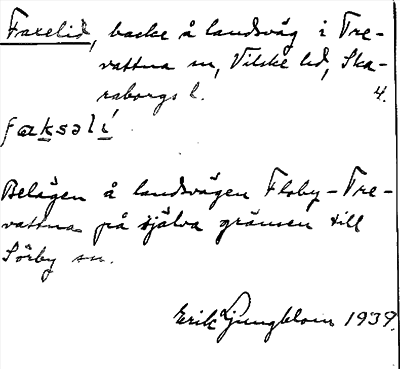 Faxelid, backe å landsväg i Tre-
vattna sn, Vilske hd, Ska-
raborgs l. 4.
fæksəlí
Belägen å landsvägen Floby-Tre-
vattna på själva gränsen till
Sörby sn.
Erik Ljungblom 1939.